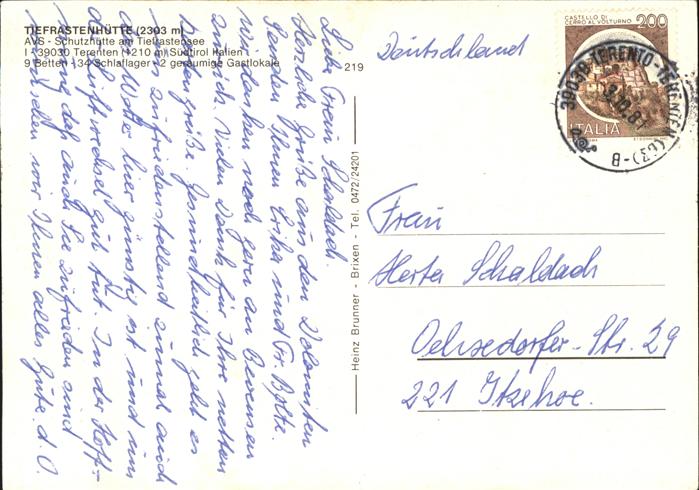 TIEFRASTENHÜTTE (2303 m)
AVS - Schutzhütte am Tiefrastensee
I - 39030 Terenten (1210 m) Südtirol Italien
9 Betten - 34 Schlaflager - 2 geräumige Gastlokale
219
Heinz Brunner - Brixen - Tel. 0472/24201
Liebe Frau Schaldach.
Herzliche Grüße aus den Dolomiten
senden Ihnen Erika und Fr.
Wir denken noch gern an
zurück. Vielen Dank für Ihre netten
Kartengrüße. Gesundheitlich geht es
zufriedenstellend zumal auch
das Wetter hier günstig ist und uns
der Luftwechsel gut tut. In der Hoff-
nung daß auch Sie zufrieden sind
wünschen wir Ihnen alles Gute. d. O.
Deutschland
CASTELLO DI
CERRO AL VOLTURNO
200
ITALIA
39030 TERENTO - TERENTEN (BZ) - B
Frau
Herta Schaldach
Oelixdorfer-Str. 29
221 Itzehoe.